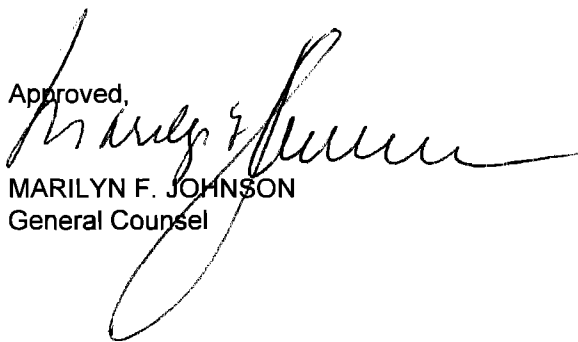 Approved,
Marilyn F Johnson
MARILYN F. JOHNSON
General Counsel